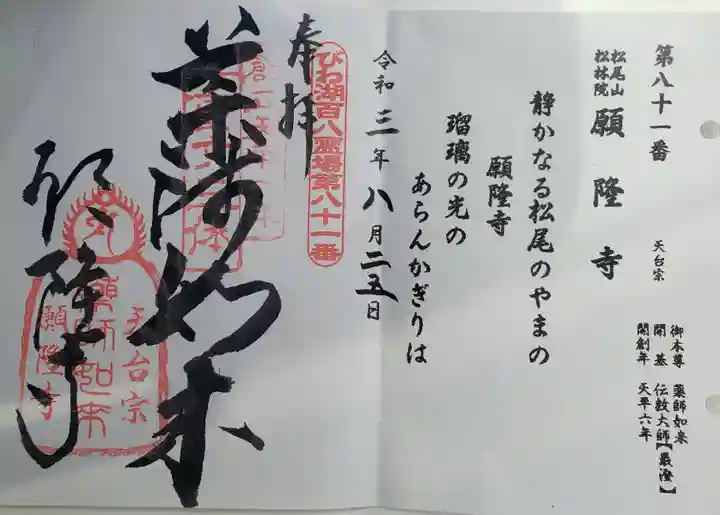 第八十一番
松尾山
松林院
願隆寺
天台宗
御本尊 薬師如来
開基 伝教大師【最澄】
開創年 天平六年
静かなる松尾のやまの
願隆寺
瑠璃の光の
あらんかぎりは
令和三年八月二五日
奉拝
びわ湖百八霊場第八十一番
薬師如来
願隆寺
天台宗
薬師如来
願隆寺